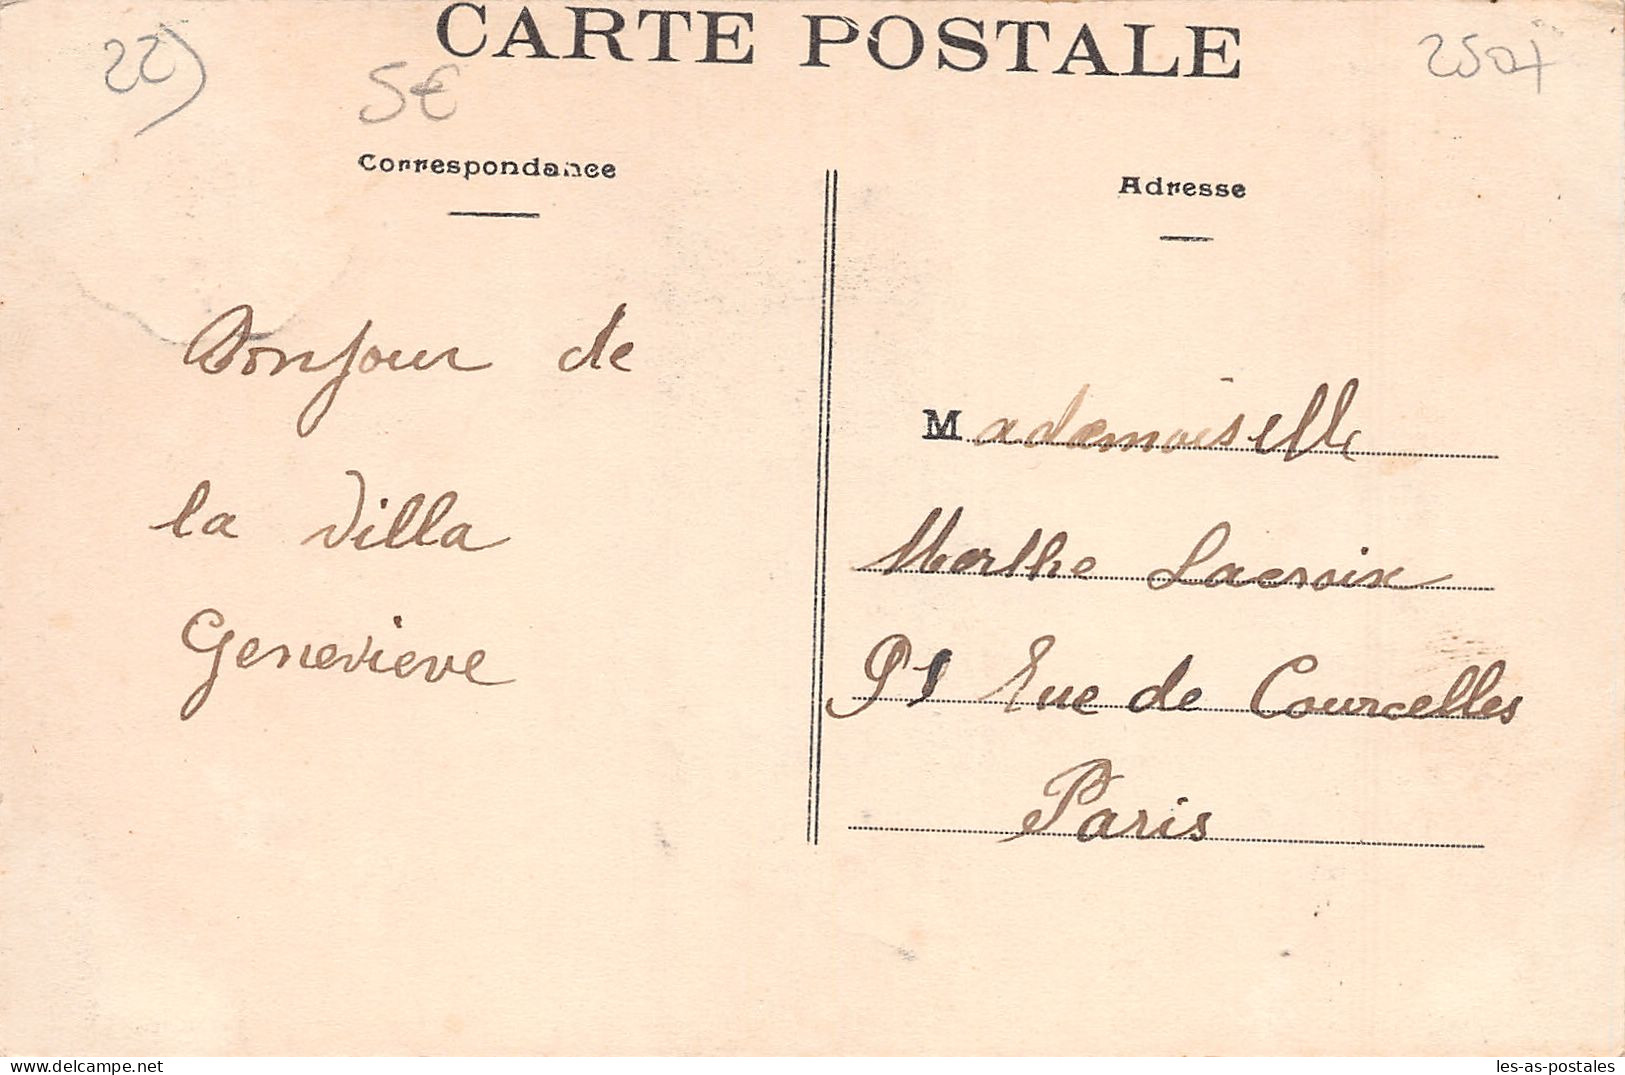 CARTE POSTALE
22)
5€
Correspondance
Adresse
Bonjour de
la Villa
Genevieve
Mademoiselle
Marthe Lacroix
91 Rue de Courcelles
Paris
delcampe.net
les-as-postales